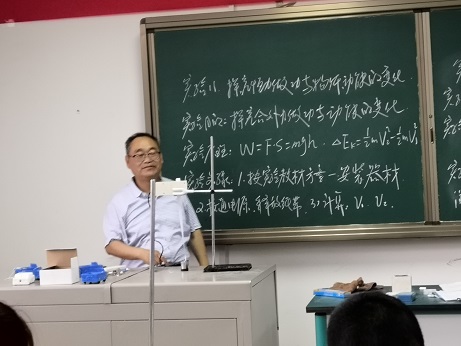 实验八 探究恒力做功与物体动能的变化
实验目的: 探究合外力做功与动能的变化
实验原理: W=F·S=mgh. ΔEk=½mV₂²-½mV₁²
实验步骤: 1.按实验教材方案一安装器材
2.接通电源、释放纸带. 3.计算. V₁ V₂.
实
实